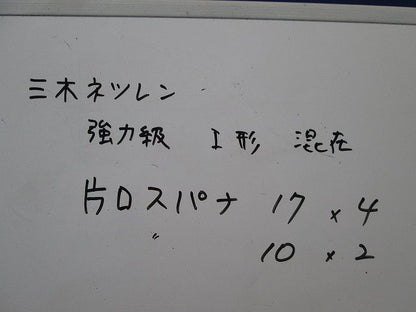 三木ネツレン
強力級 I形 混在
片口スパナ 17 x 4
〃 10 x 2